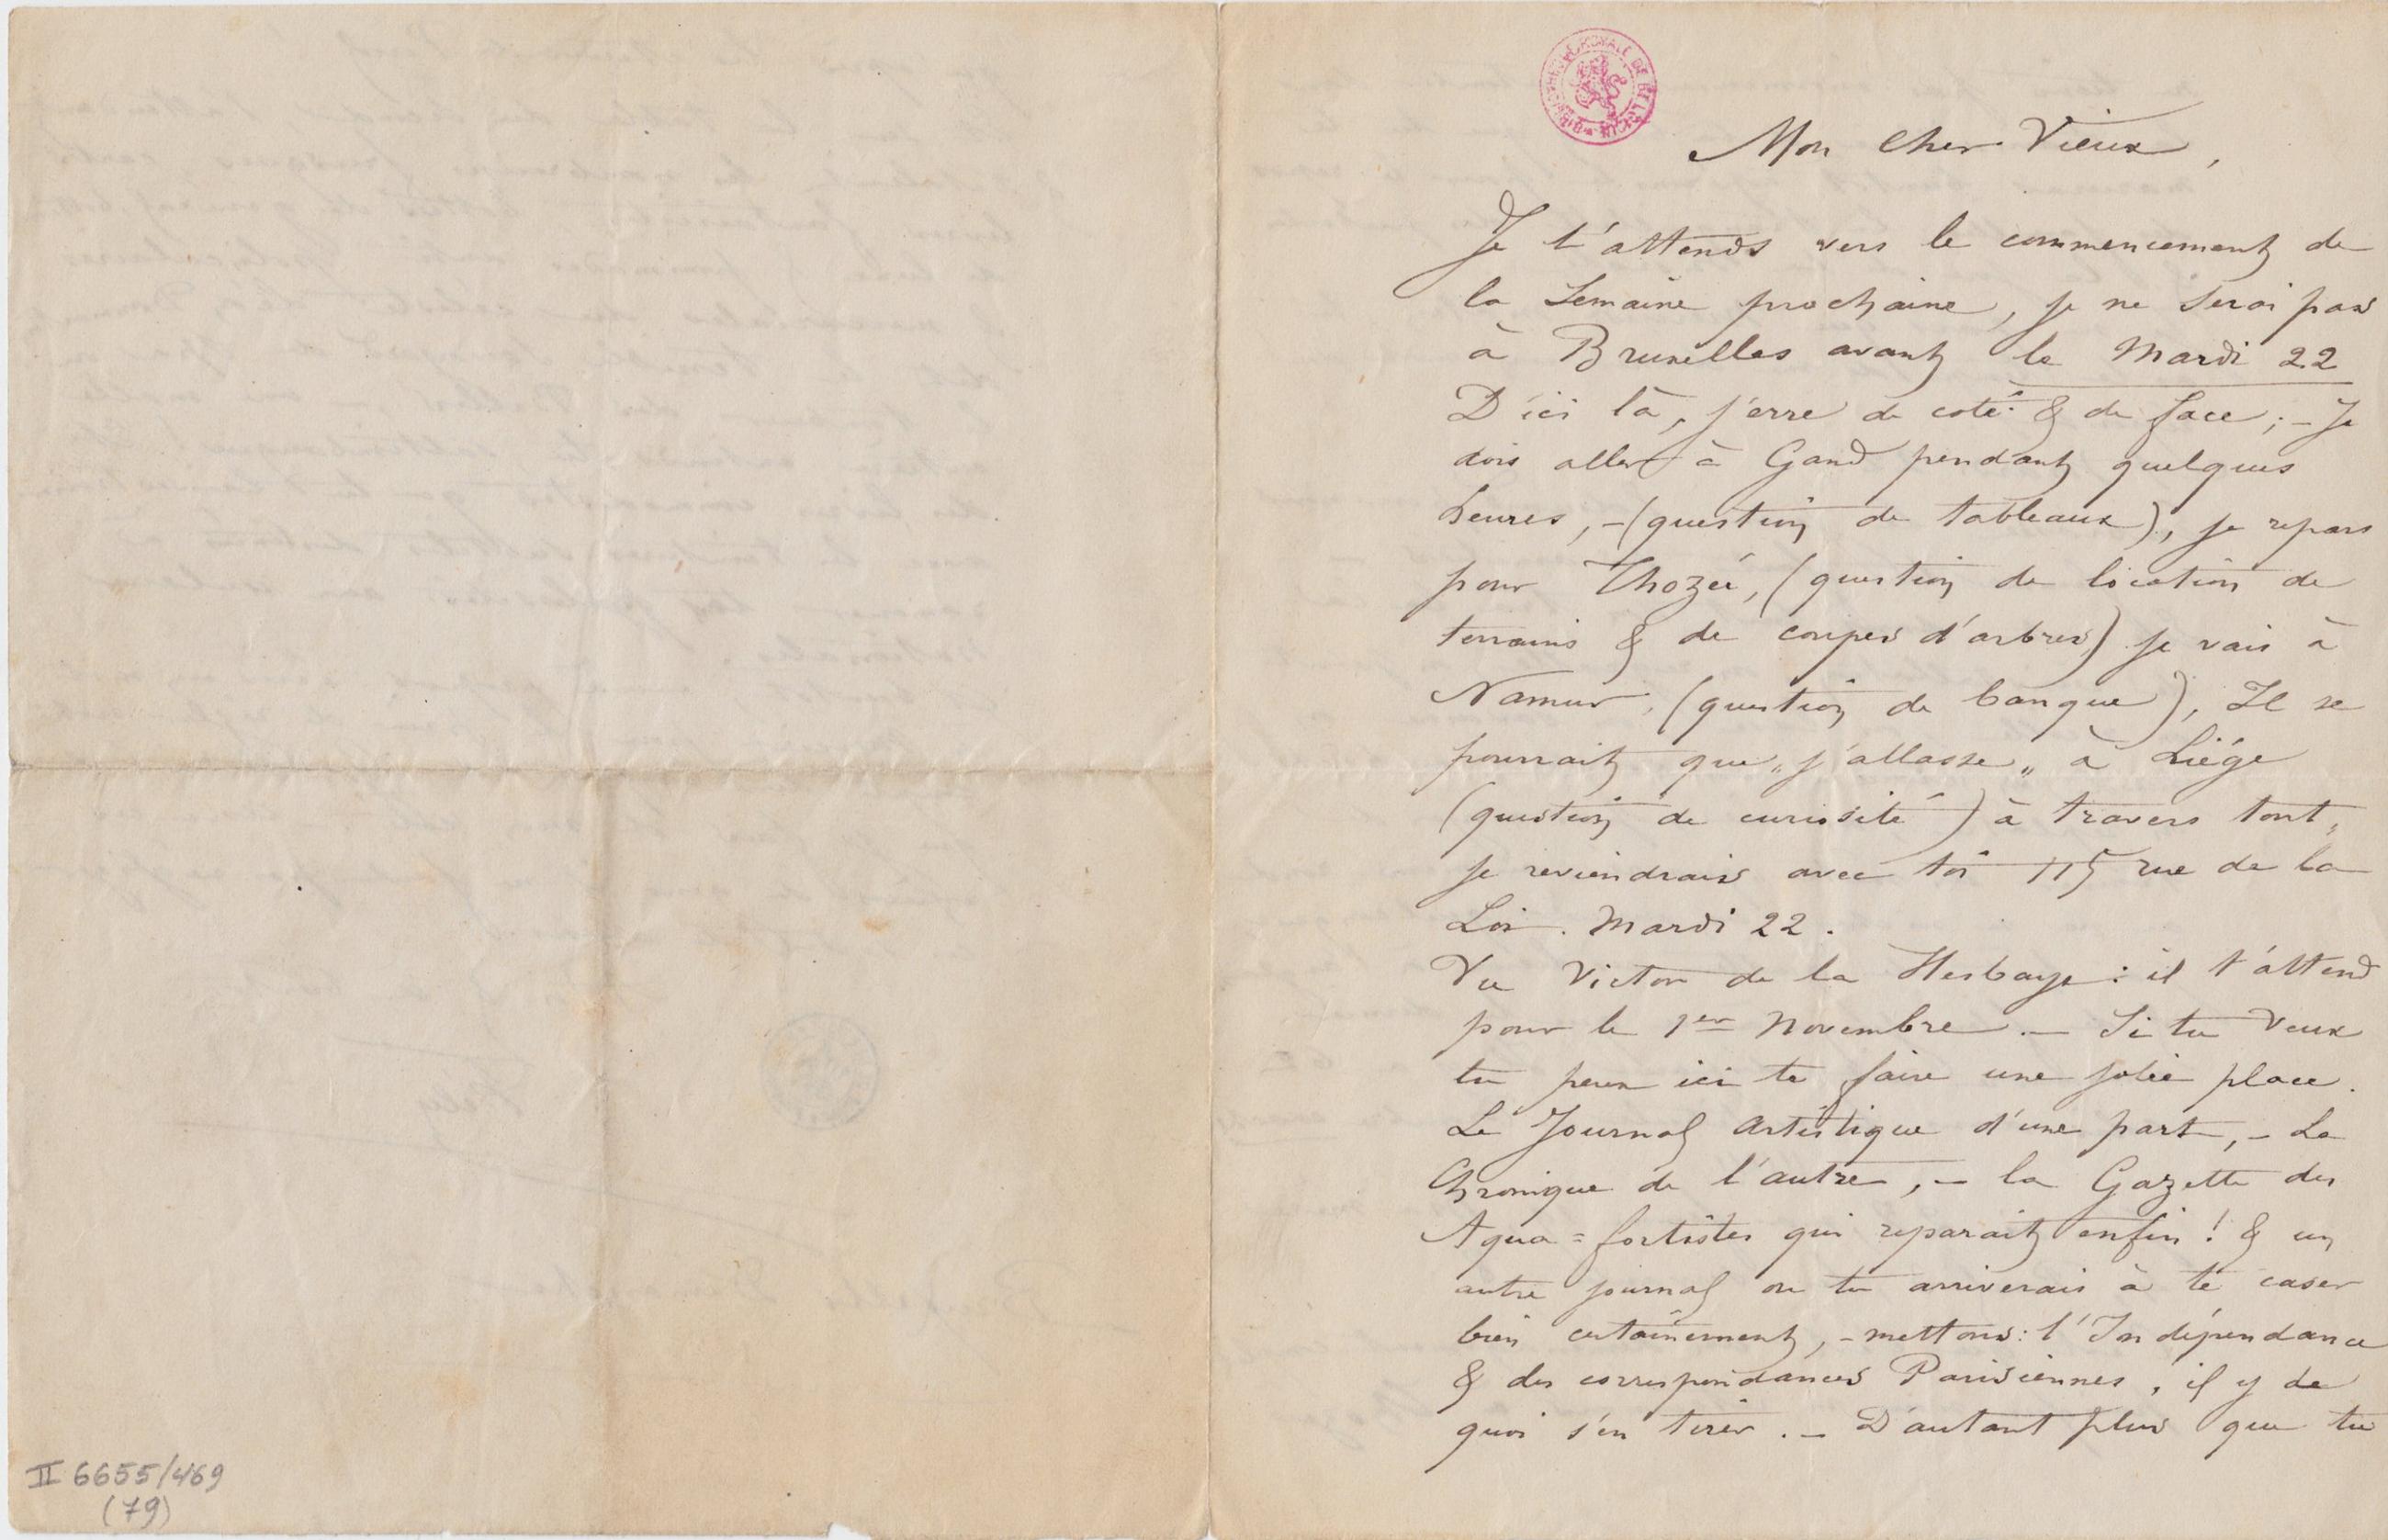 II 6655/469
(79)
BIBLIOTHÈQUE ROYALE DE BELGIQUE
Mon Cher Vieux,
Je t'attends vers le commencement de
la Semaine prochaine, je ne serai pas
à Bruxelles avant le Mardi 22
D'ici là, j'erre de coté & de face; – Je
dois aller à Gand pendant quelques
heures, – (question de tableaux), je repars
pour Thozée, (question de location de
terrains & de coupes d'arbres) je vais à
Namur, (question de banque), Il se
pourrait que „j'allasse„ à Liége
(question de curiosité) à travers tout,
je reviendrais avec toi 115 rue de la
Loi. Mardi 22.
Vu Victor de la Hesbaye: il t'attend
pour le 1er Novembre. – Si tu veux
tu peux ici te faire une jolie place.
Le Journal Artistique d'une part, – La
Chronique de l'autre, – la Gazette des
Aqua=fortistes qui reparait enfin! & un
autre journal ou tu arriverais à te caser
bien certainement, – mettons: l'Indépendance
& des correspondances Parisiennes, il y de
quoi s'en tirer. – D'autant plus que tu